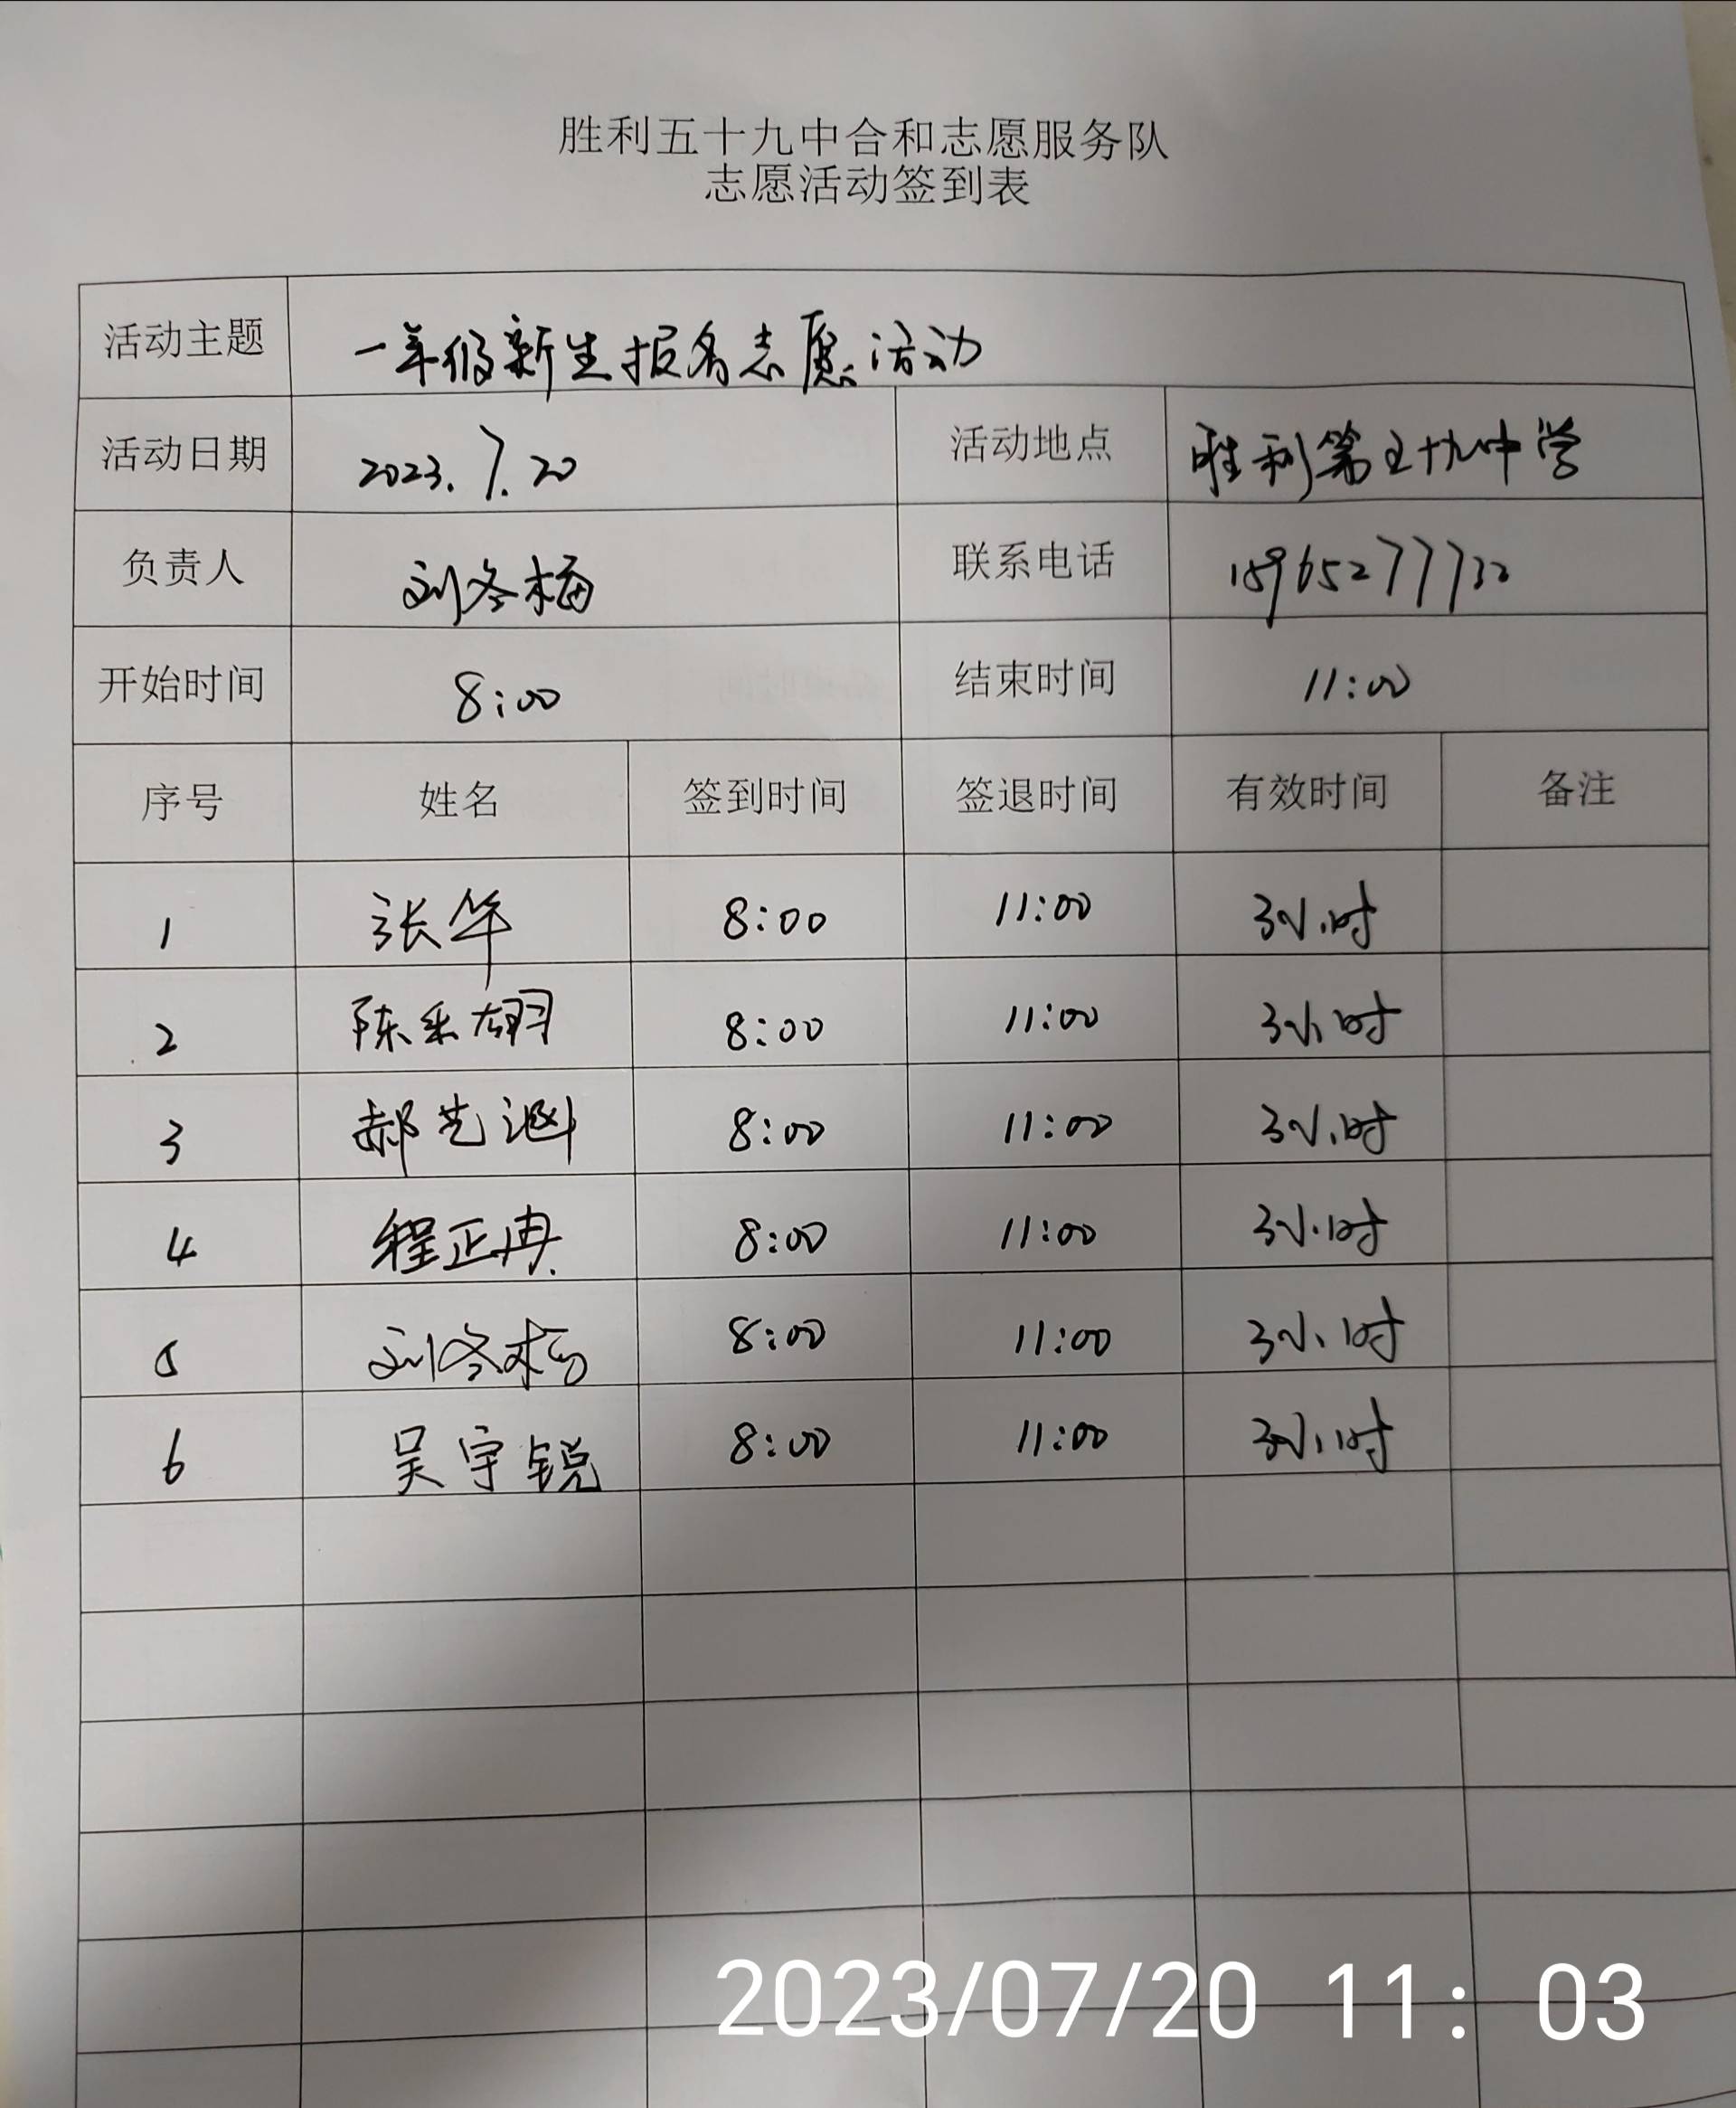 胜利五十九中合和志愿服务队
志愿活动签到表
活动主题 一年级新生报名志愿活动
活动日期 2023.7.20 活动地点 胜利第五十九中学
负责人 刘冬梅 联系电话
开始时间 8:00 结束时间 11:00
序号 姓名 签到时间 签退时间 有效时间 备注
1 张华 8:00 11:00 3小时
2 陈采翊 8:00 11:00 3小时
3 郝艺 8:00 11:00 3小时
4 程正冉 8:00 11:00 3小时
5 刘冬梅 8:00 11:00 3小时
6 吴宇锐 8:00 11:00 3小时
2023/07/20 11: 03